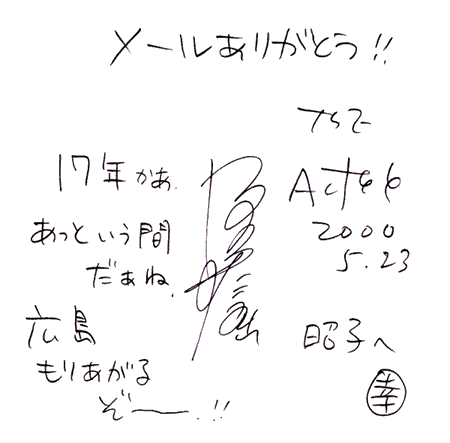 メールありがとう!!
17年かぁ.
あっという間
だぁね.
広島
もりあがる
ぞー.!!
2000
5.23
昭子へ
幸